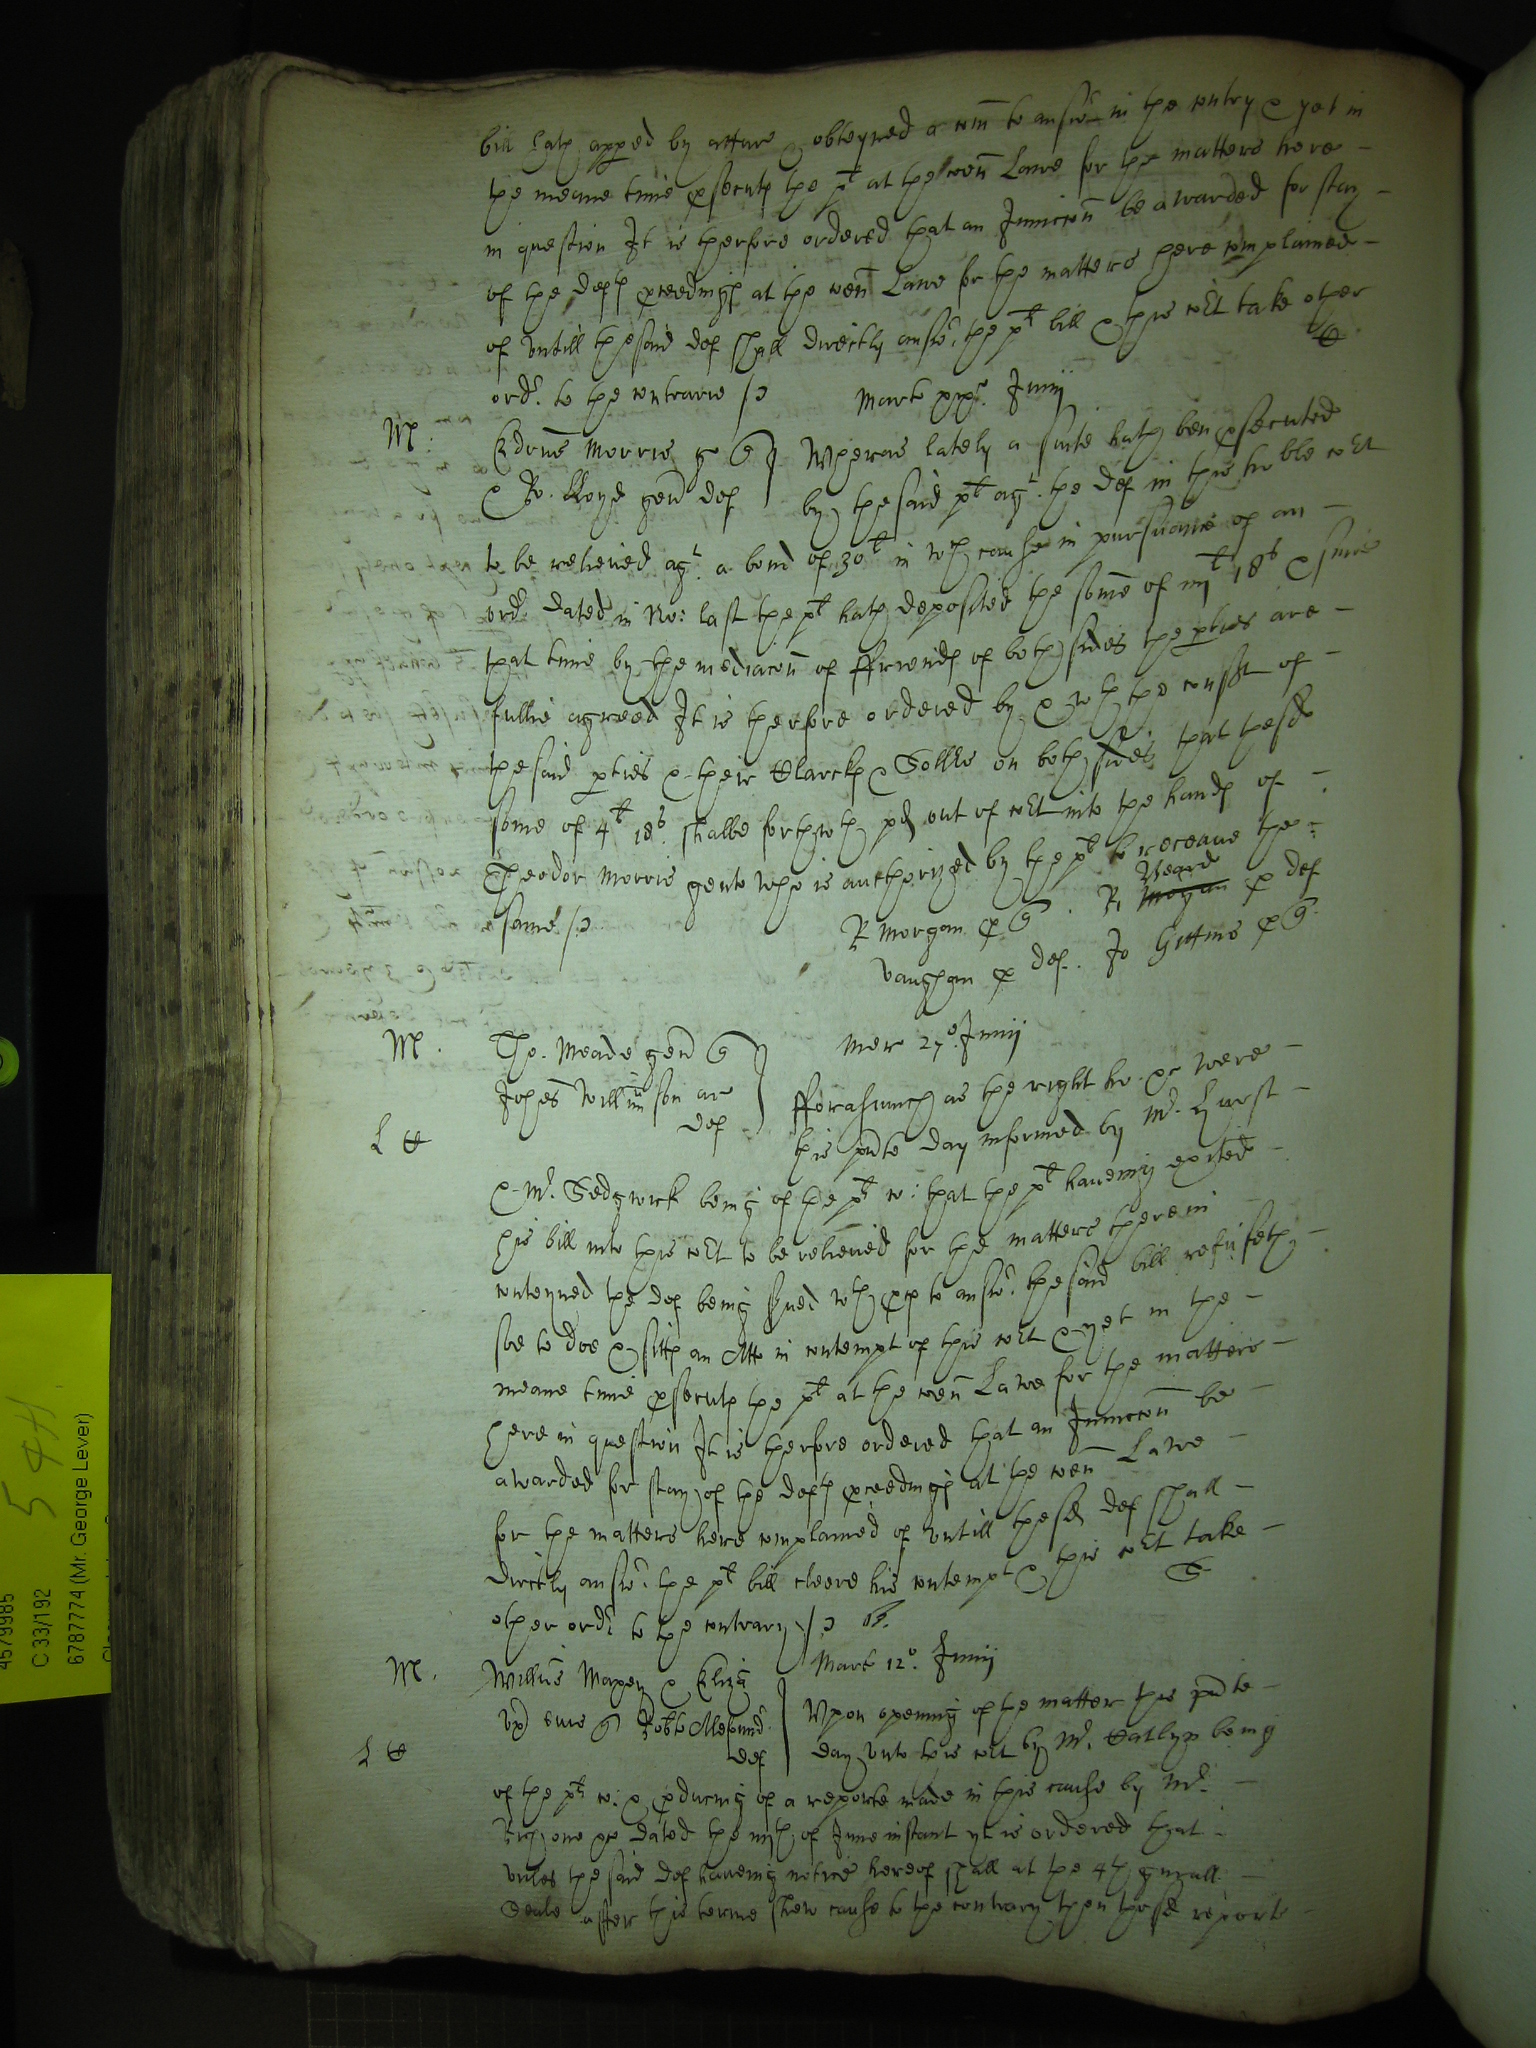 bill hath appeᵈ by attur & obteyned a com̃ to answʳ in the contry & yet in
the meane time psecuts the pˡᵗ at the com̃ Lawe for the matters here
in question It is therfore ordered that an Iniuccon be awarded for stay
of the defts pceedings at the com̃ Lawe for the matters here complained
of vntill the said def shall directly answʳ the pˡᵗ bill & this coᵗ take other
ordʳ to the contrarie
Marts xixº Junij
M
Edrus Morris q
& Ro. lloyd gen̄ def
Wheras lately a suite hath ben psecuted
by the said pˡᵗ agᵗ the def in this hoble coᵗ
to be relieved agᵗ a bond of 30ˡ in wᶜʰ cause in pursuance of an
ordʳ dated in No: last the pˡᵗ hath deposited the some of iiijˡ 18ˢ & since
that time by the mediacon of ffriends of both sides the pties are
fullie agreed It is therfore ordered by & wᵗʰ the consent of
the said pties & their Clarcks & Sollrs on both sides that the sd
some of 4ˡ 18ˢ shalbe forthwᵗʰ pd out of coᵗ into the hands of
Theodor Morris gent who is authorized by the pˡᵗ to receaue the
same
R Morgan p q R, Morgan Weard p def
Vaughan p def. Jo Gittins p q
M
Tho. Meade gen̄ q
Johes Willm̃son ar
def
Mer 27º Junij
L
fforasmuch as the right ho. &c were
this pnte day informed by Mʳ Hurst
& Mʳ. Sedgwick being of the pˡᵗ co: that the pˡᵗ haueing exited
his bill into this coᵗ to be relieued for the matters therein
conteyned the def being serued wᵗʰ pces to answʳ the said bill refuseth
soe to doe & sitts an Att in contempt of this coᵗ & yet in the
meane time psecuts the pˡᵗ at the com̃ Lawe for the matters
here in question It is therfore ordered that an Iniuccon be
awarded for stay of the defts pceedings at the com̃ Lawe
for the matters here complained of vntill the sd def shall
directly answʳ the pˡᵗ bill cleere his contempt & this coᵗ take
other ordʳ to the contrary
M
Mart 12º Junij
Willus Maxey & Eliz
vx eius q Robto
def
L
Vpon opening of the matter this pnte
day vnto this coᵗ by Mʳ. being
of the pˡᵗ co: & pducing of a reporte made in this cause by Mʳ
dated the iiijth of June instant yt is ordered that
vnles the said def haueing notice hereof shall at the 4th gnrall
Seale after this terme shew cause to the contrary then the sd reporte
541
4579985
C 33/192
6787774 (Mr. George Lever)